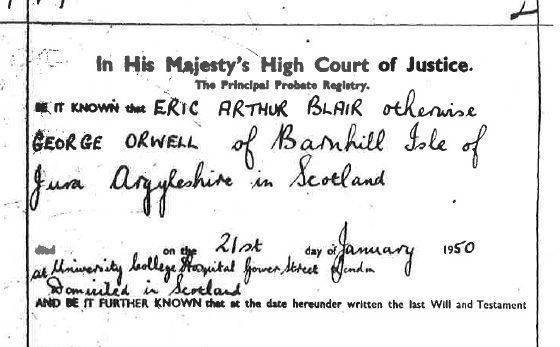 In His Majesty's High Court of Justice.
The Principal Probate Registry.
BE IT KNOWN that ERIC ARTHUR BLAIR otherwise
GEORGE ORWELL of Barnhill Isle of
Jura Argyleshire in Scotland
died on the 21st day of January 1950
at University College Hospital Gower Street London
Domiciled in Scotland
AND BE IT FURTHER KNOWN that at the date hereunder written the last Will and Testament